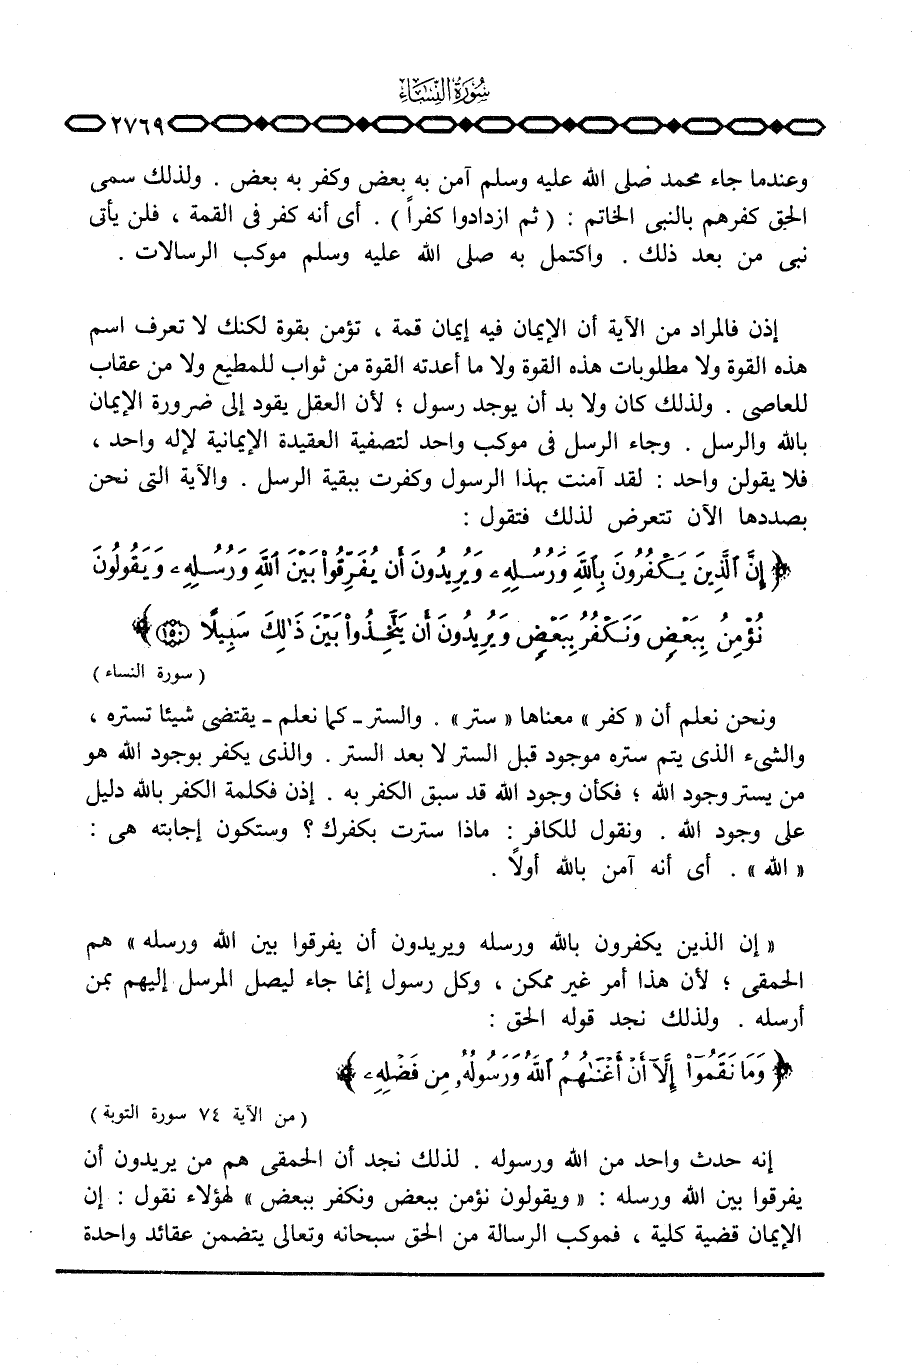 سُورَةُ النِّسَاءِ
٢٧٦٩
وعندما جاء محمد صلى الله عليه وسلم آمن به بعض وكفر به بعض . ولذلك سمى
الحق كفرهم بالنبى الخاتم : ( ثم ازدادوا كفراً ) . أى أنه كفر فى القمة ، فلن يأتى
نبى من بعد ذلك . واكتمل به صلى الله عليه وسلم موكب الرسالات .
إذن فالمراد من الآية أن الإيمان فيه إيمان قمة ، تؤمن بقوة لكنك لا تعرف اسم
هذه القوة ولا مطلوبات هذه القوة ولا ما أعدته القوة من ثواب للمطيع ولا من عقاب
للعاصى . ولذلك كان ولا بد أن يوجد رسول ؛ لأن العقل يقود إلى ضرورة الإيمان
بالله والرسل . وجاء الرسل فى موكب واحد لتصفية العقيدة الإيمانية لإله واحد ،
فلا يقولن واحد : لقد آمنت بهذا الرسول وكفرت ببقية الرسل . والآية التى نحن
بصددها الآن تتعرض لذلك فتقول :
﴿ إِنَّ ٱلَّذِينَ يَكْفُرُونَ بِٱللَّهِ وَرُسُلِهِۦ وَيُرِيدُونَ أَن يُفَرِّقُوا۟ بَيْنَ ٱللَّهِ وَرُسُلِهِۦ وَيَقُولُونَ
نُؤْمِنُ بِبَعْضٍ وَنَكْفُرُ بِبَعْضٍ وَيُرِيدُونَ أَن يَتَّخِذُوا۟ بَيْنَ ذَٰلِكَ سَبِيلًا ۝١٥٠ ﴾
( سورة النساء )
ونحن نعلم أن « كفر » معناها « ستر » . والستر ـ كما نعلم ـ يقتضى شيئا تستره ،
والشىء الذى يتم ستره موجود قبل الستر لا بعد الستر . والذى يكفر بوجود الله هو
من يستر وجود الله ؛ فكأن وجود الله قد سبق الكفر به . إذن فكلمة الكفر بالله دليل
على وجود الله . ونقول للكافر : ماذا سترت بكفرك ؟ وستكون إجابته هى :
« الله » . أى أنه آمن بالله أولاً .
« إن الذين يكفرون بالله ورسله ويريدون أن يفرقوا بين الله ورسله » هم
الحمقى ؛ لأن هذا أمر غير ممكن ، وكل رسول إنما جاء ليصل المرسل إليهم بمن
أرسله . ولذلك نجد قوله الحق :
﴿ وَمَا نَقَمُوٓا۟ إِلَّآ أَنْ أَغْنَىٰهُمُ ٱللَّهُ وَرَسُولُهُۥ مِن فَضْلِهِۦ ﴾
( من الآية ٧٤ سورة التوبة )
إنه حدث واحد من الله ورسوله . لذلك نجد أن الحمقى هم من يريدون أن
يفرقوا بين الله ورسله : « ويقولون نؤمن ببعض ونكفر ببعض » لهؤلاء نقول : إن
الإيمان قضية كلية ، فموكب الرسالة من الحق سبحانه وتعالى يتضمن عقائد واحدة